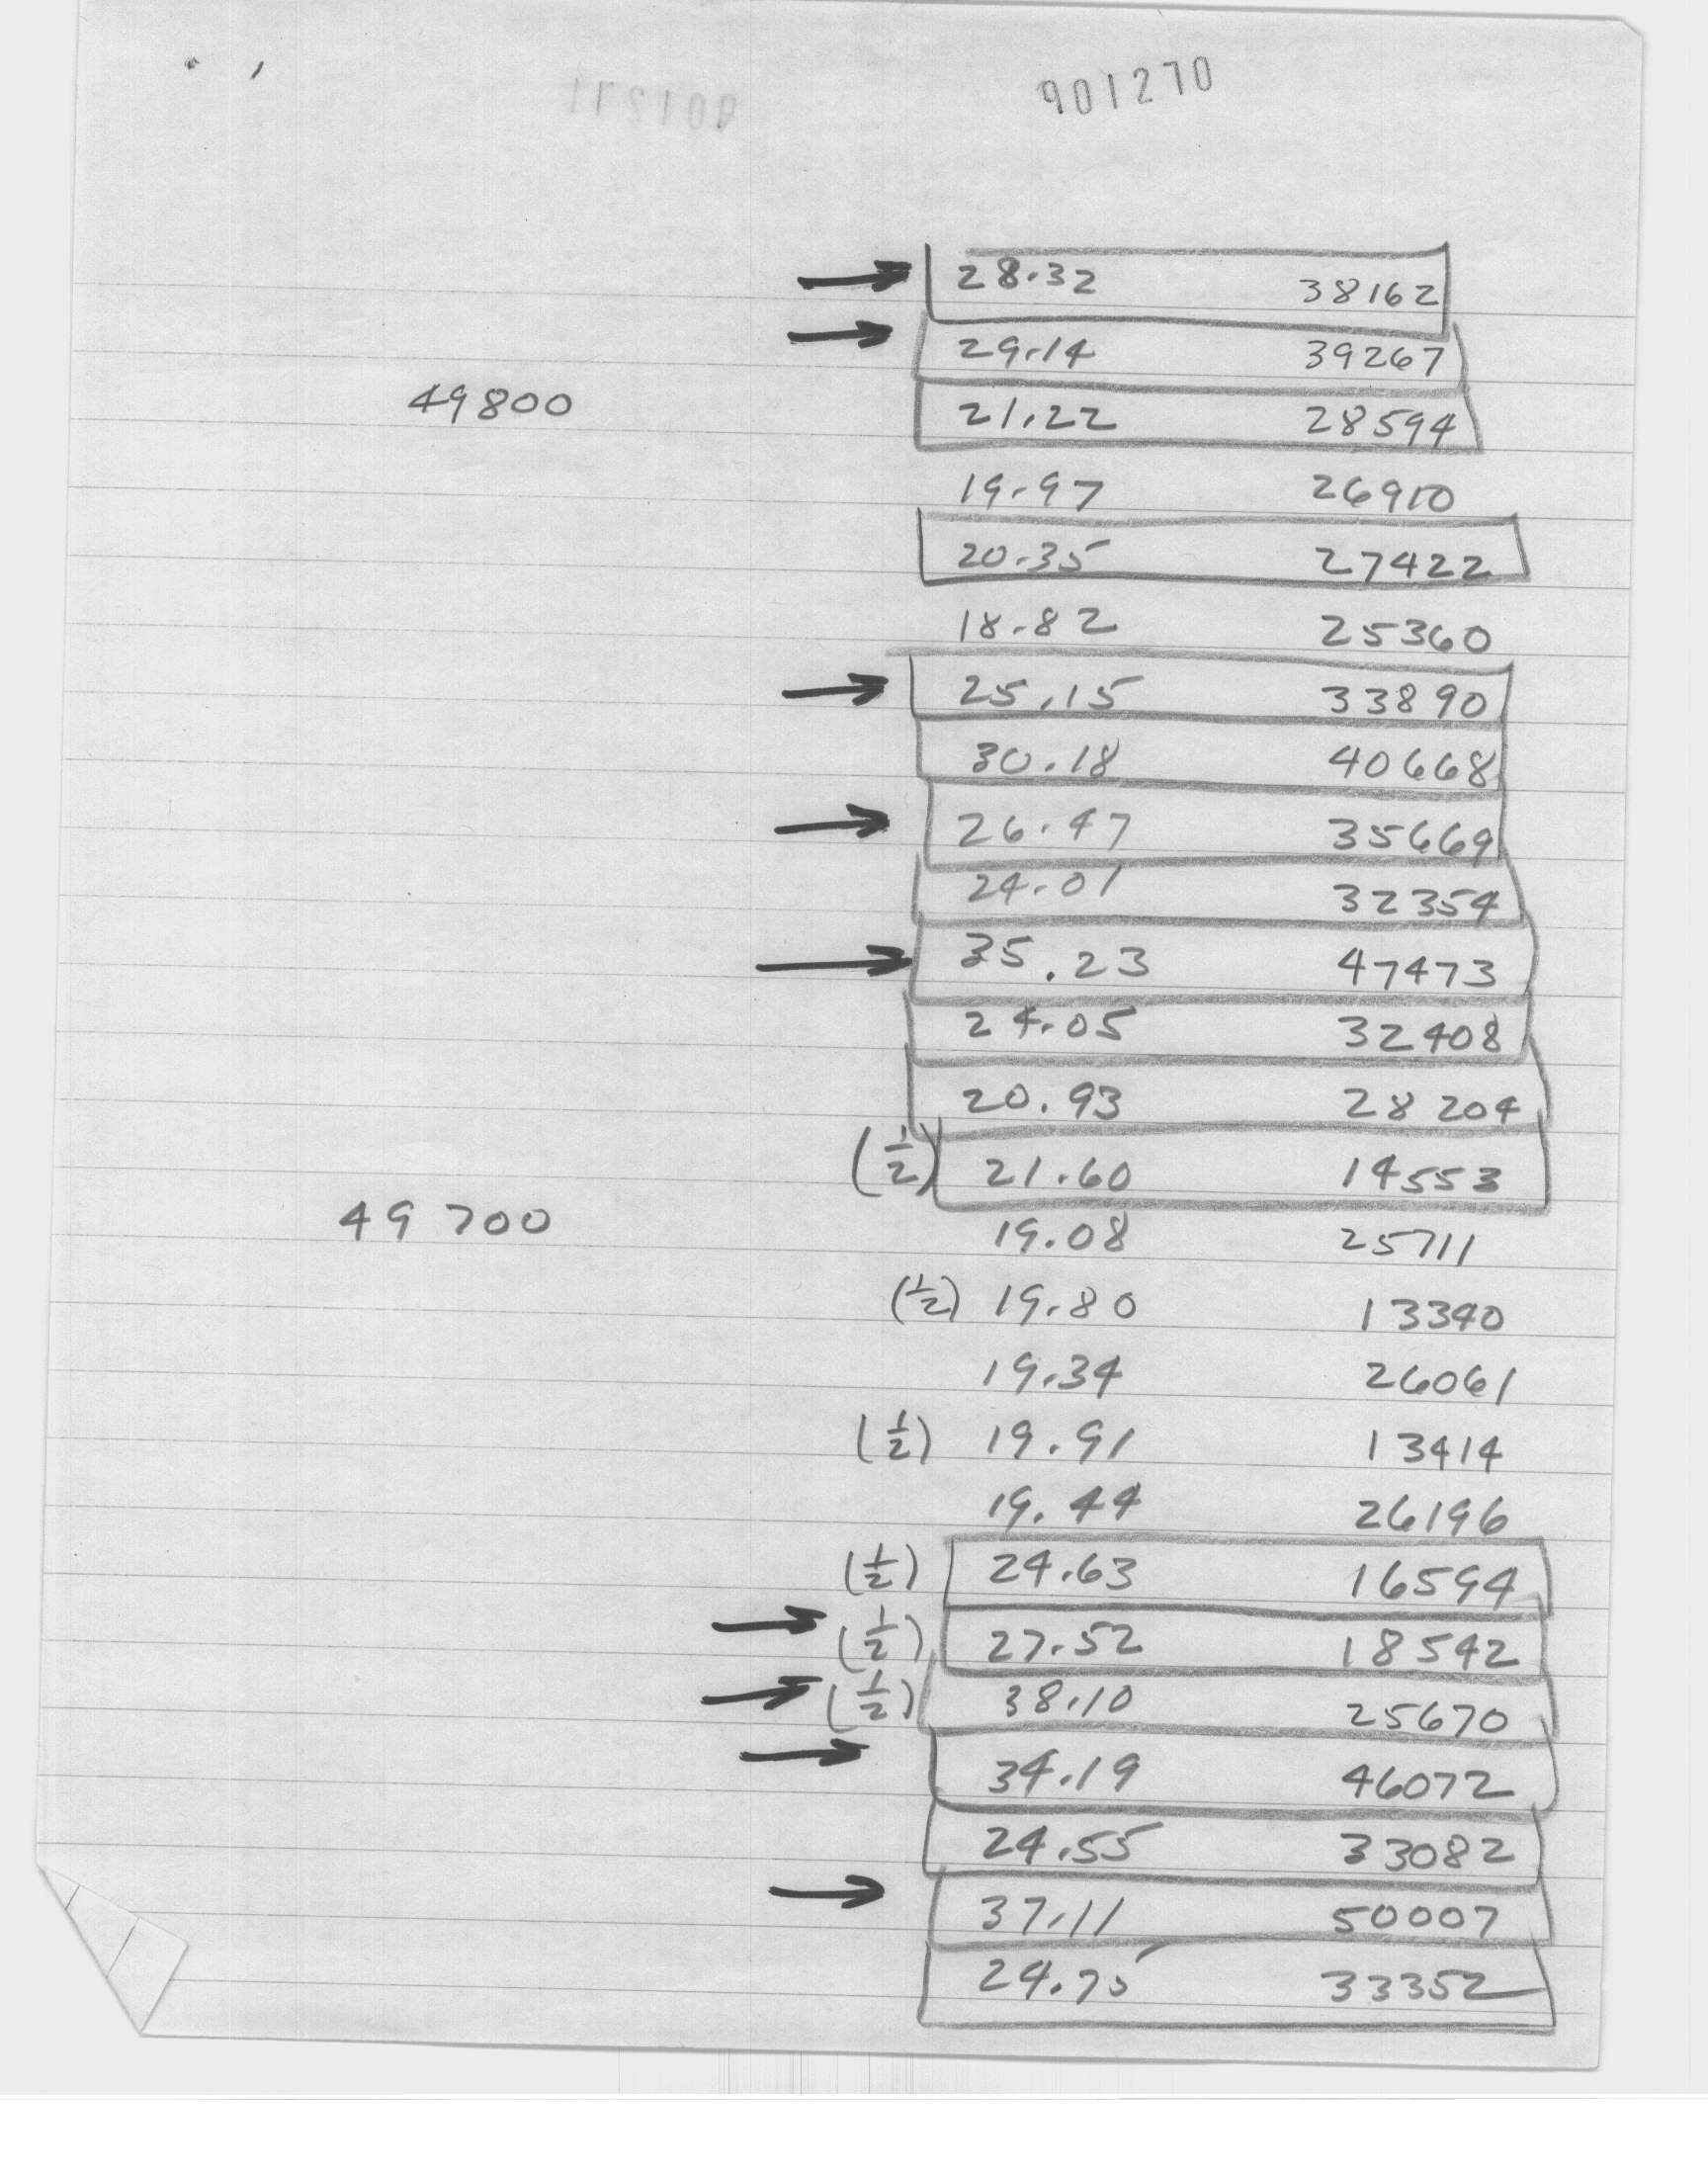 901270
28.32 38162
29.14 39267
49800 21.22 28594
19.97 26910
20.35 27422
18.82 25360
25.15 33890
30.18 40668
26.47 35669
24.01 32354
35.23 47473
24.05 32408
20.93 28204
(1/2) 21.60 14553
49700 19.08 25711
(1/2) 19.80 13340
19.34 26061
(1/2) 19.91 13414
19.44 26196
(1/2) 24.63 16594
(1/2) 27.52 18542
(1/2) 38.10 25670
34.19 46072
24.55 33082
37.11 50007
24.75 33352